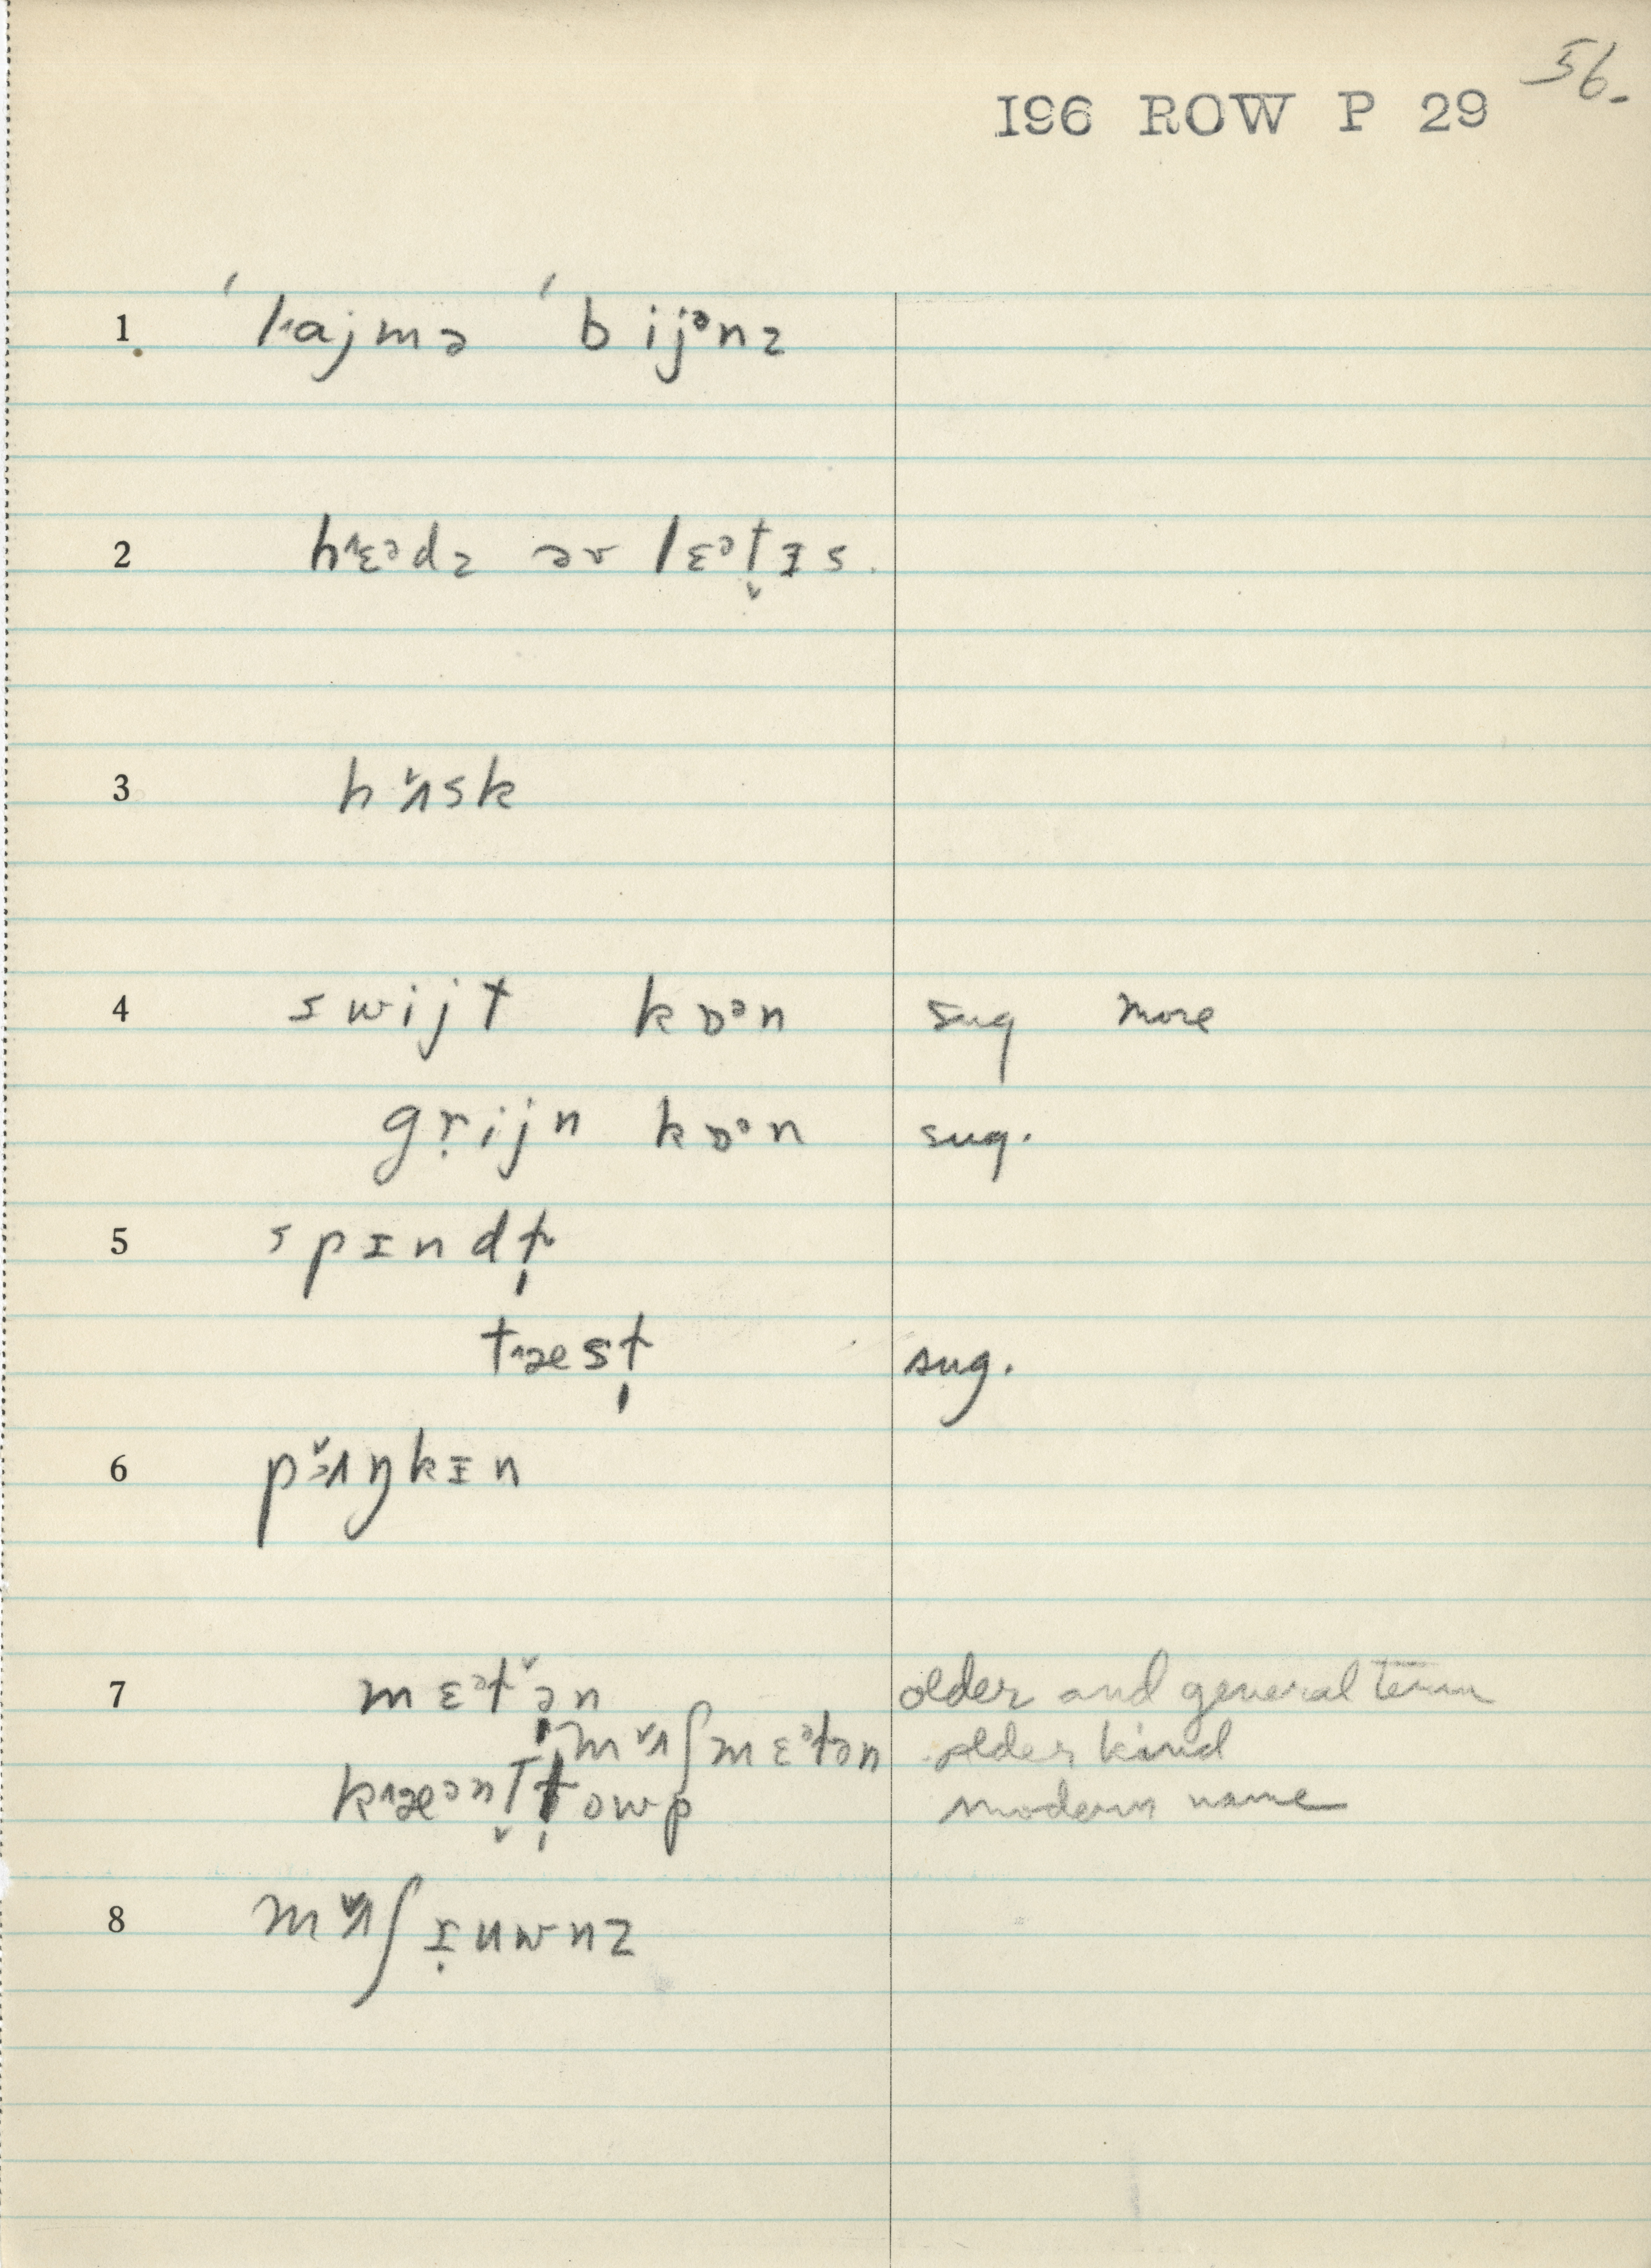 56.
I96 ROW P 29
1. ˈlajmə ˈbijᵊnz
2 hɛᵊdz əv lɛᵊt̬ɪs.
3 hʌ̌sk
4 swijt kɒᵊn sug more
gṛijn kɒᵊn sug.
5 spɪndɫ̩
tæsɫ̩ sug.
6 pɜ̌ʌŋkɪn
7 mɛᵊɫə̌n older and general term
mʌ̌ʃmɛᵊɫən older kind
kæᵊnt̬ɫ̩owp modern name
8 mʌ̌ʃɪ̣uwnz